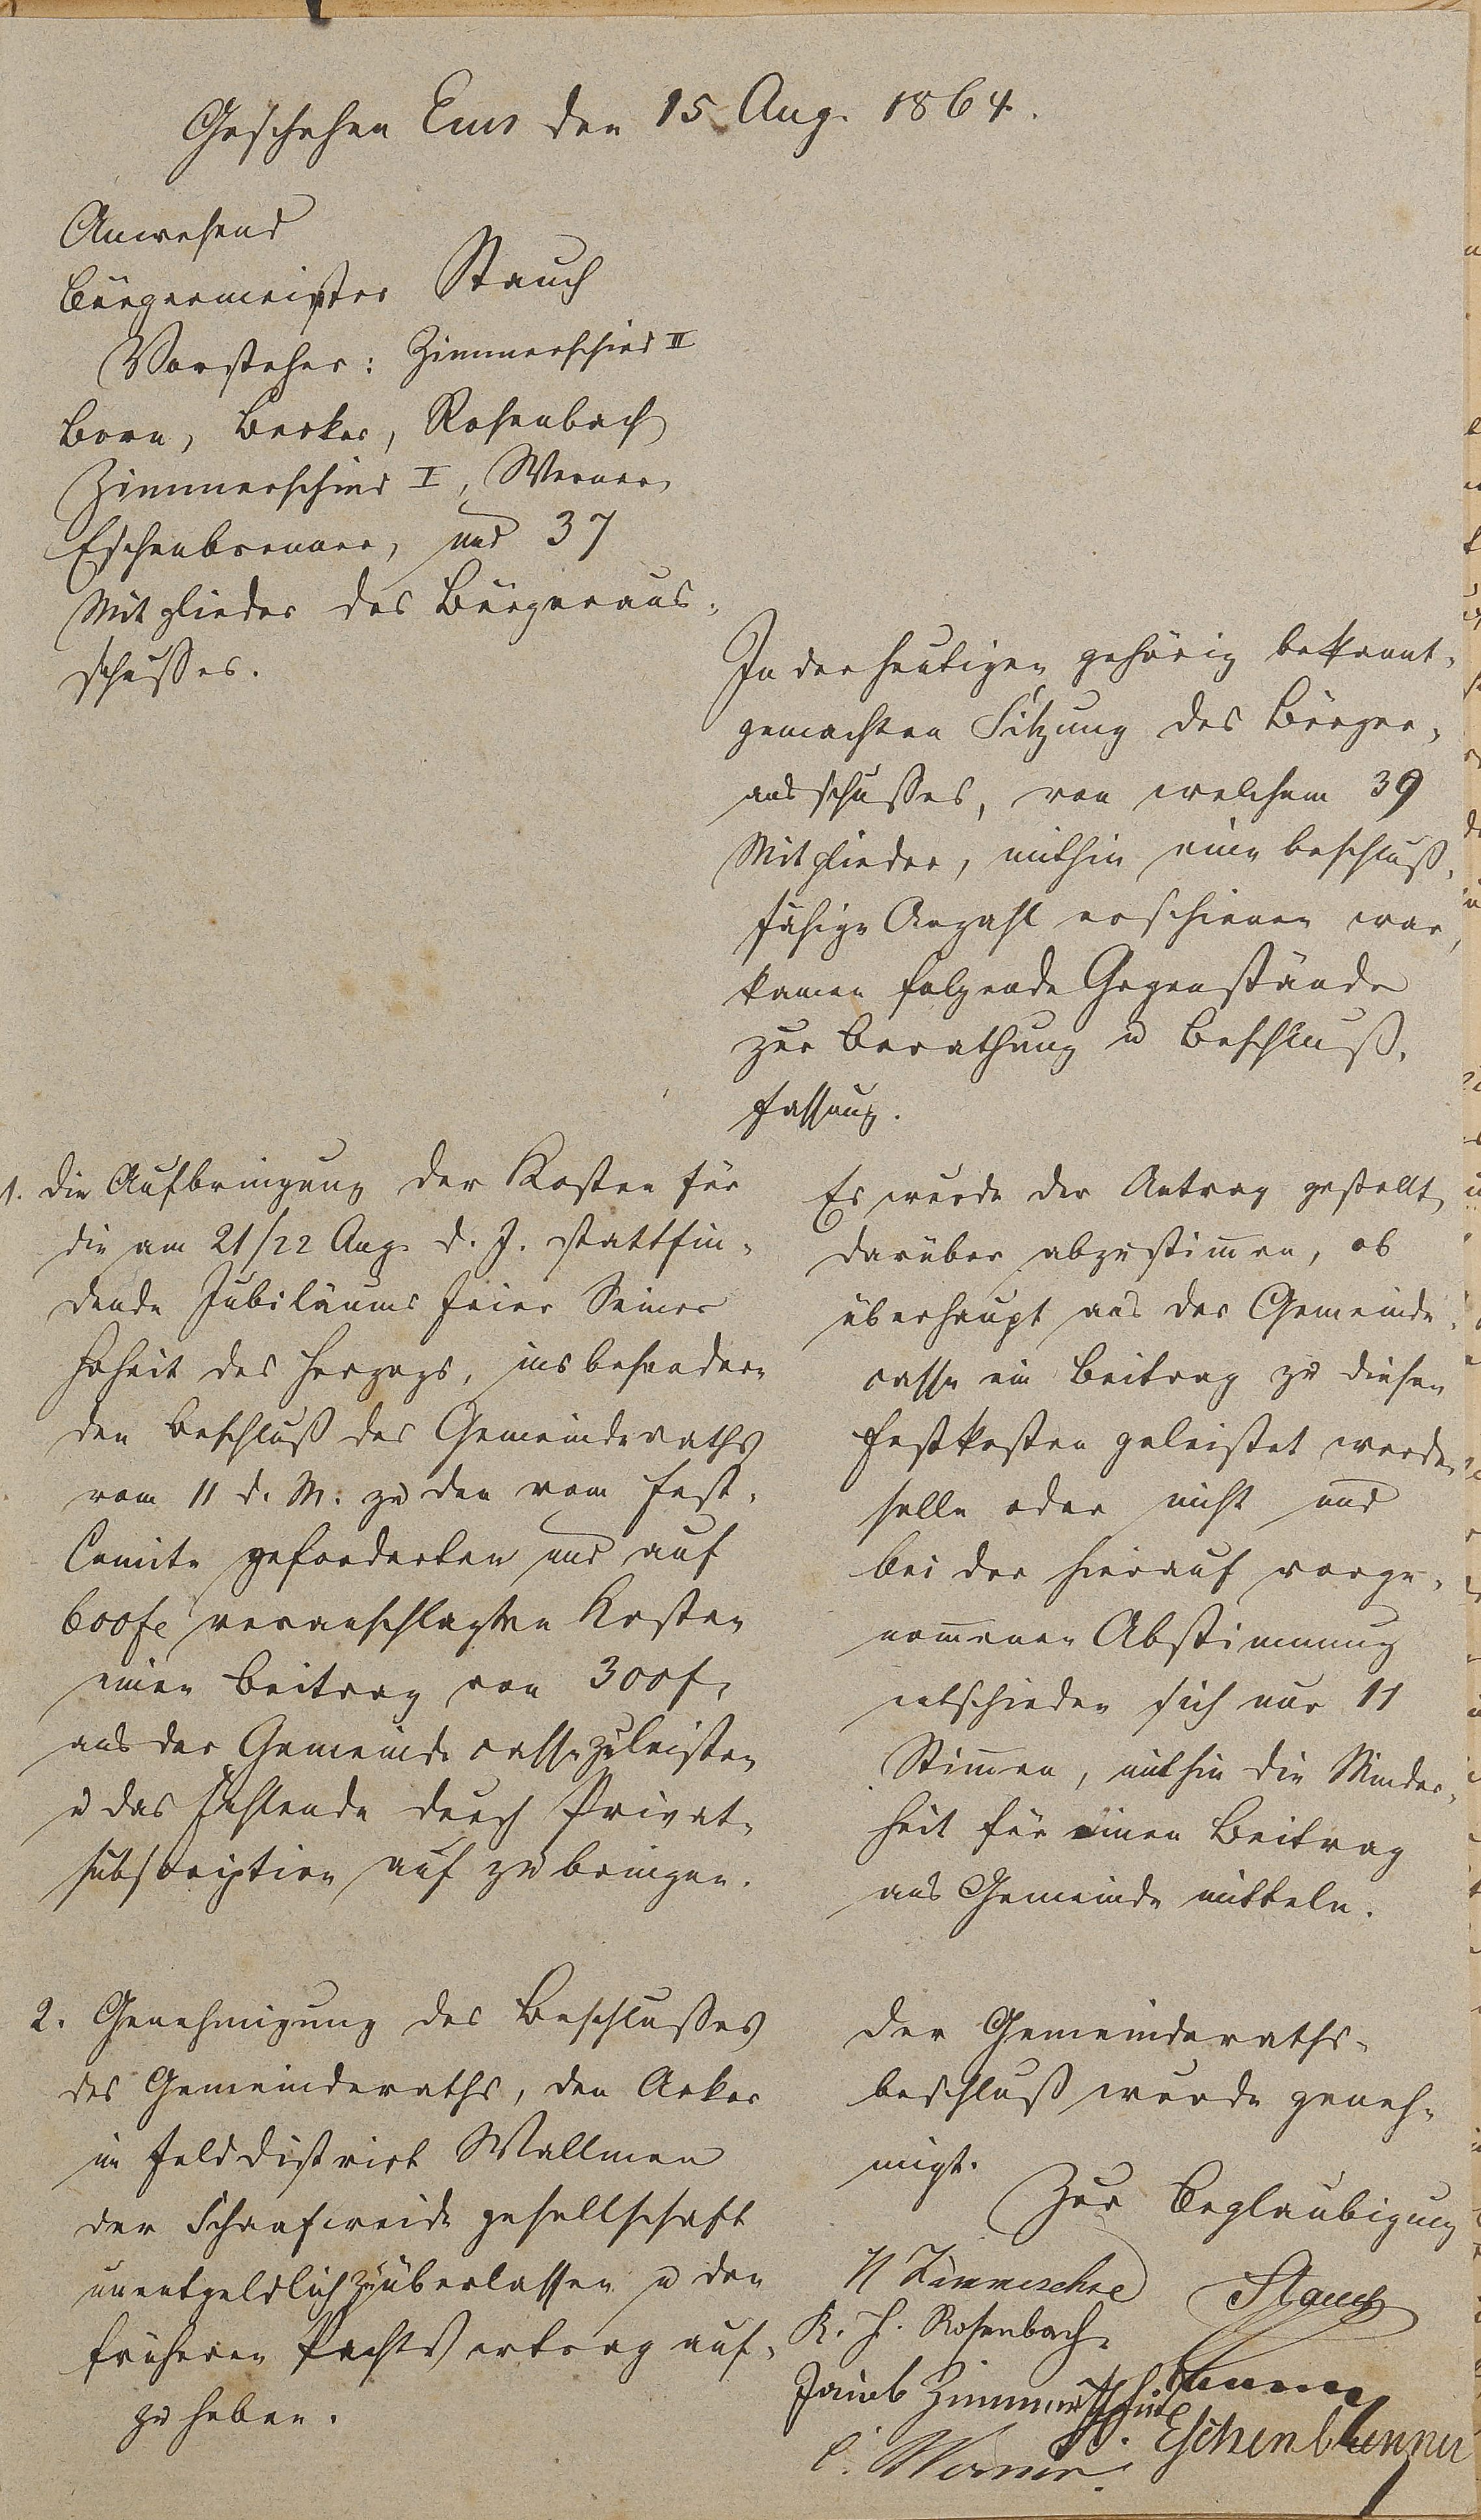 Geschehen Ems den 15. Aug. 1864.
Anwesend
Bürgermeister Stauch
Vorsteher: Zimmerschied III
Born, Becker, Rosenbach
Zimmerschied I, Werner,
Eschenbrenner, und 37
Mitglieder des Bürgeraus-
schusses.
In der heutigen gehörig bekannt-
gemachten Sitzung des Bürger-
ausschusses, von welchem 39
Mitglieder, mithin eine beschluß-
fähige Anzahl erschienen war,
kamen folgende Gegenstände
zur Berathung u Beschluß-
fassung.
1. Die Aufbringung der Kosten für
die am 21/22 Aug. d. J. stattfin-
dende Jubiläums feier Seiner
Hoheit des Herzogs, insbesondere
den Beschluß des Gemeinderaths
vom 11 d. M. zu den vom Fest-
Comite geforderten und auf
600 f veranschlagten Kosten
einen Beitrag von 300 f,
aus der Gemeinde casse zu leisten
u das Fehlende durch Privat-
subscription auf zu bringen.
Es wurde der Antrag gestellt,
darüber abzustimmen, ob
überhaupt aus der Gemeinde-
casse ein Beitrag zu diesen
Festkosten geleistet werden
solle oder nicht und
bei der hierauf vorge-
nommenen Abstimmung
entschieden sich nur 11
Stimmen, mithin die Minder-
heit für einen Beitrag
aus Gemeinde mitteln.
2. Genehmigung des Beschlusses
des Gemeinderaths, den Acker
im Felddistrict Wallmen
der Schaafweide gesellschaft
unentgeldlich zu überlassen u den
früheren Pachtvertrag auf-
zu heben.
Der Gemeinderaths-
beschluß wurde geneh-
migt.
Zur Beglaubigung
Stauch
K. H. Rosenbach
Jacob Zimmerschied
H. Eschenbrenner
C. Werner.